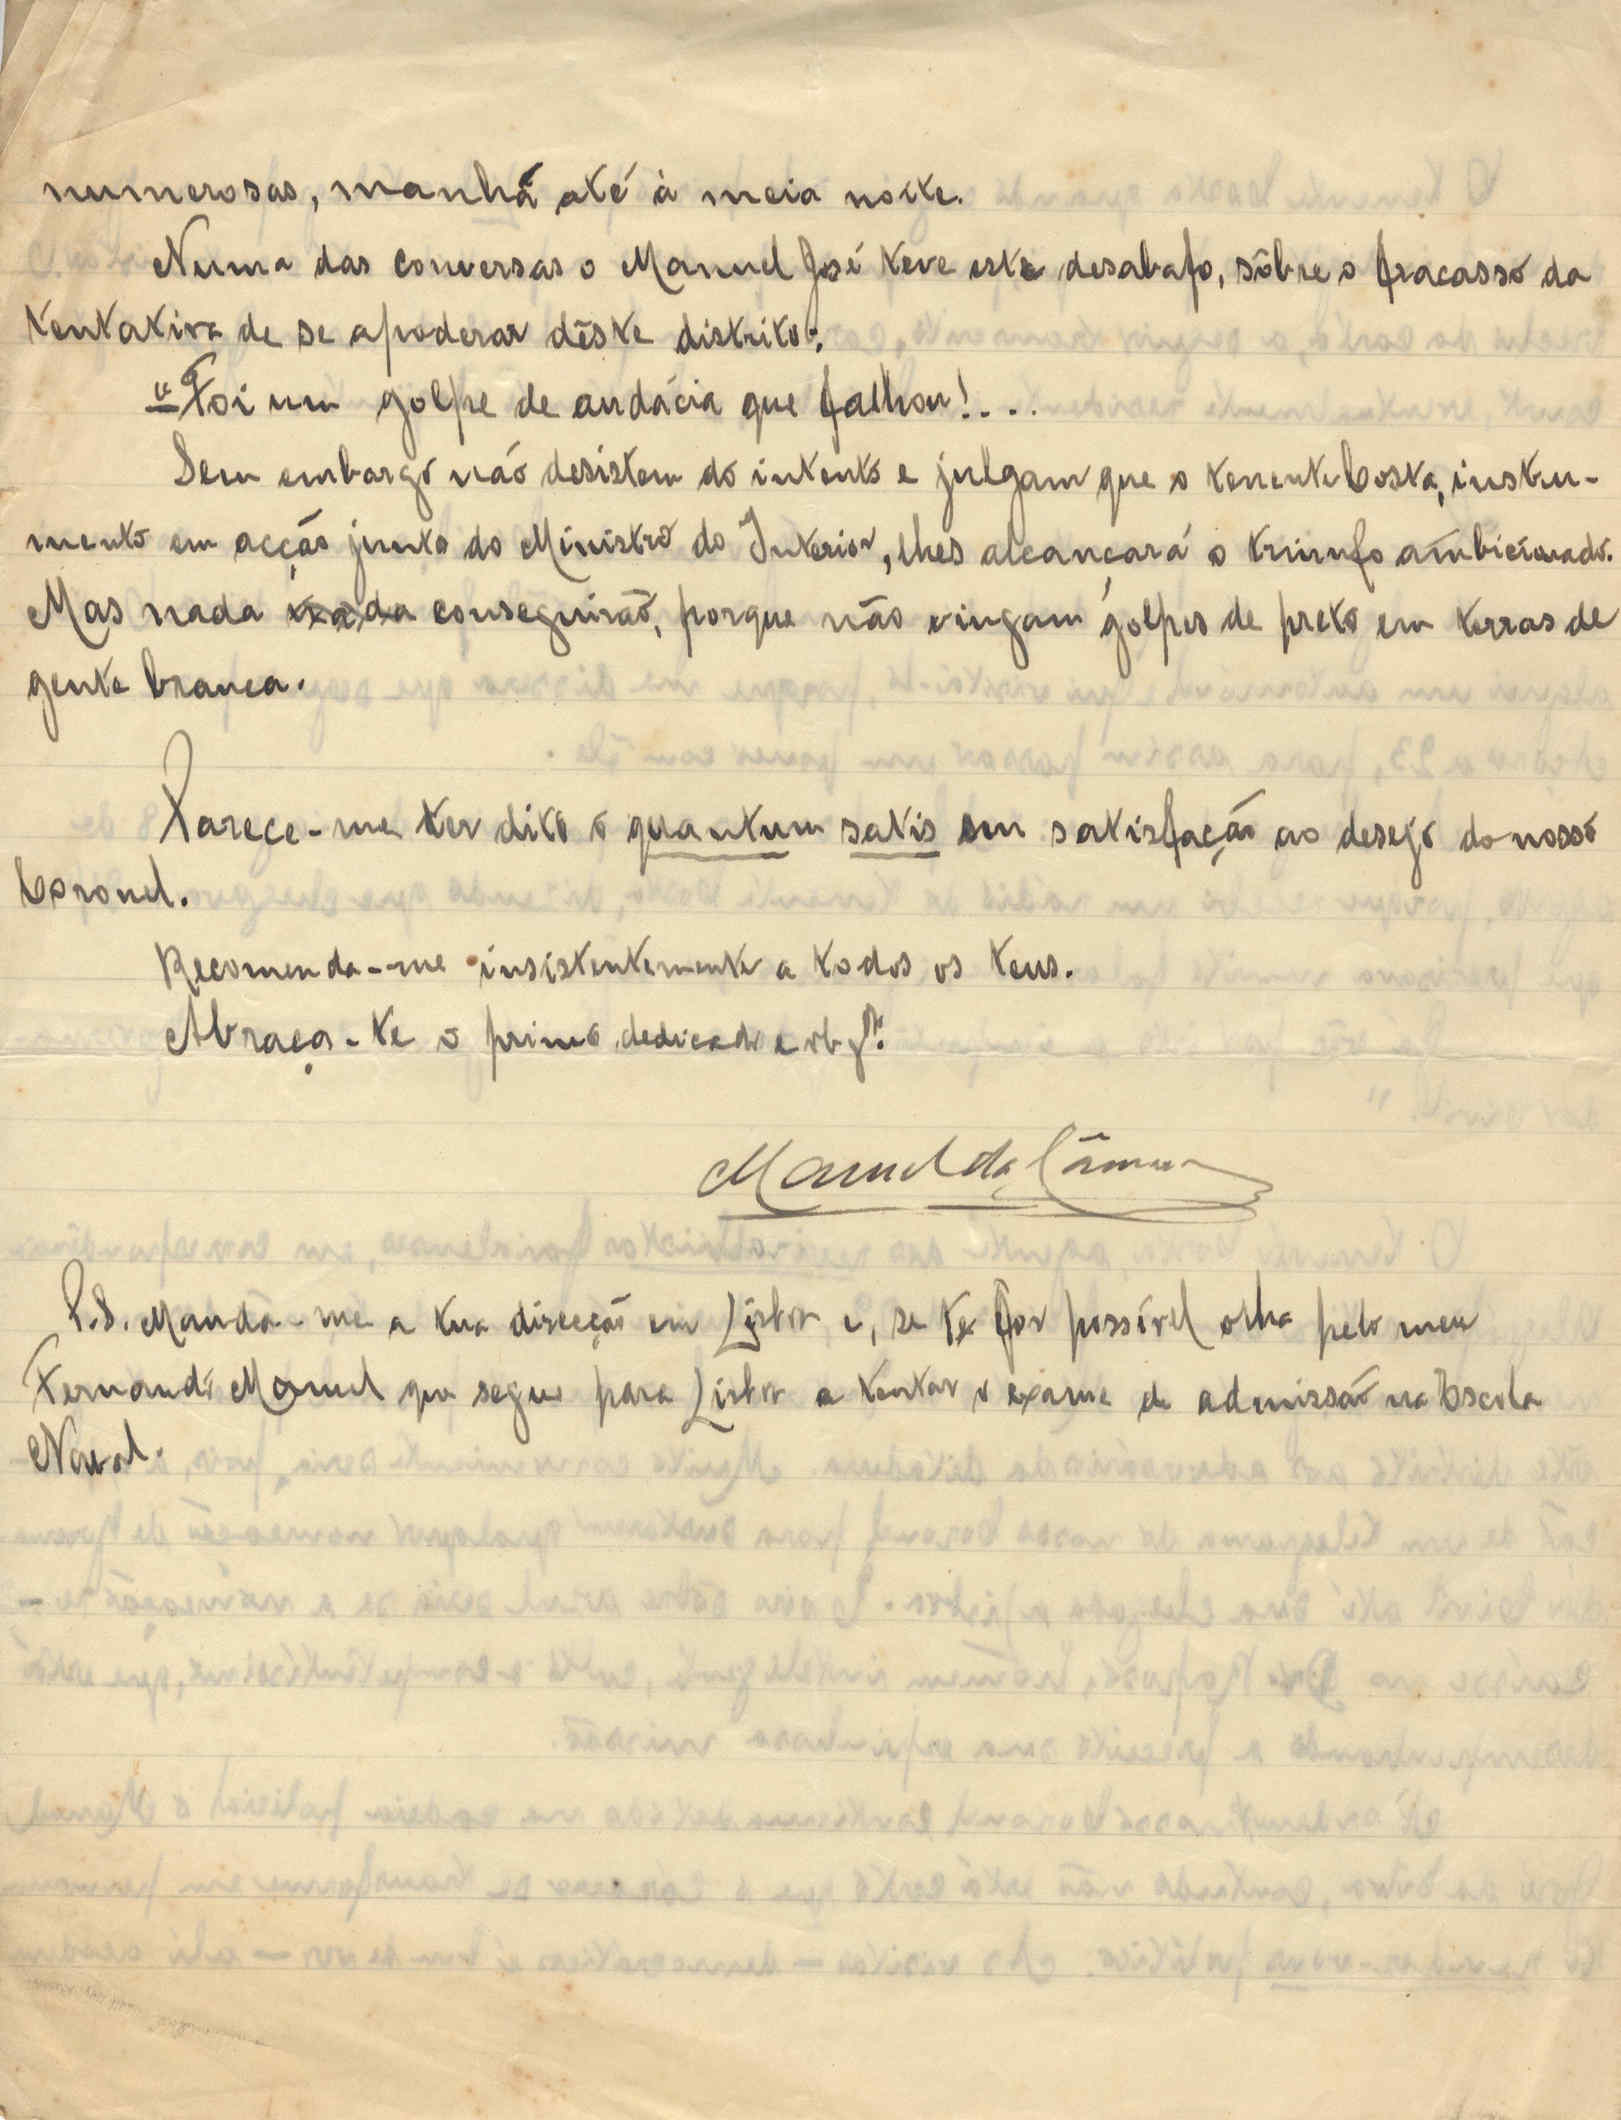 numerosas, manhã até à meia noite.
Numa das conversas o Manuel José teve este desabafo, sôbre o fracasso da
tentativa de se apoderar dêste distrito:
"Foi um golpe de audácia que falhou!...
Sem embargo não desistem do intento e julgam que o tenente Costa, instru-
mento em acção junto do Ministro do Interior, lhes alcançará o triunfo ambicionado.
Mas nada conseguirão, porque não vingam golpes de preto em terras de
gente branca.
Parece-me ter dito o quantum satis em satisfação ao desejo do nosso
Coronel.
Recomenda-me insistentemente a todos os teus.
Abraça-te o primo dedicado e obgº.
Manuel da Câmara
P.S. Manda-me a tua direcção em Lisboa e, se te fôr possível olha pelo meu
Fernando Manuel que segue para Lisboa a tentar o exame de admissão na Escola
Naval.